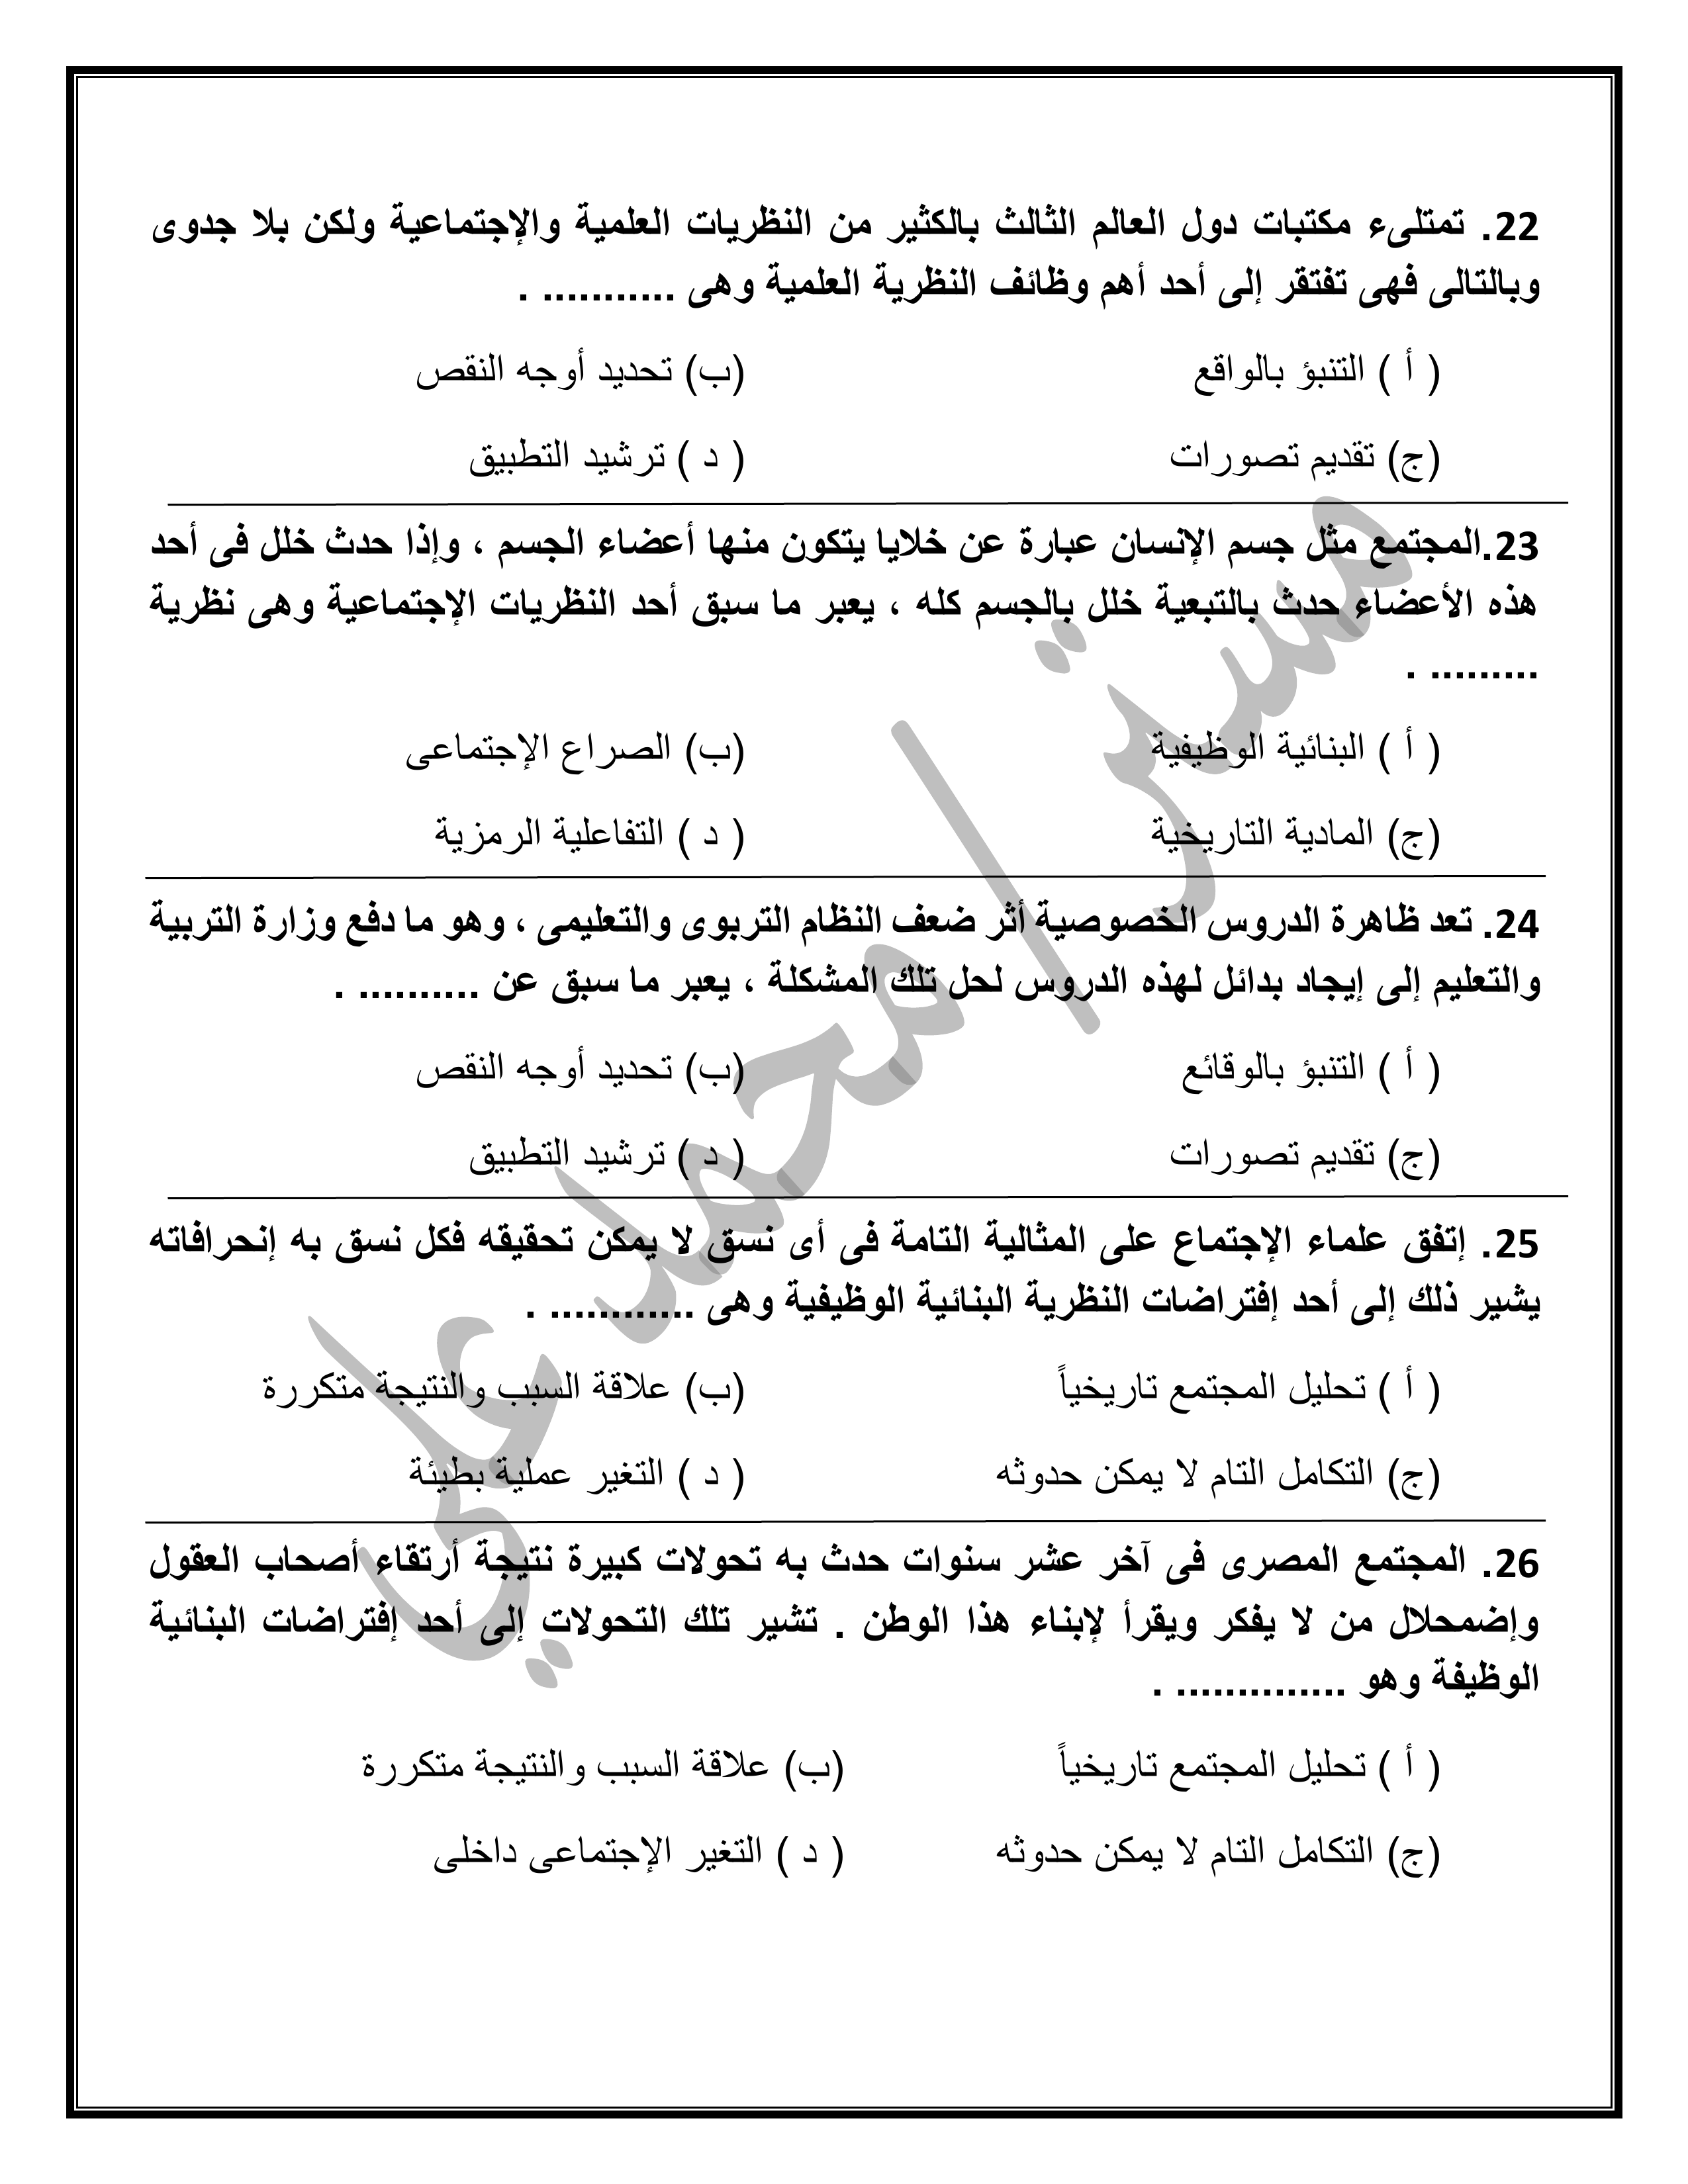 22. تمتلىء مكتبات دول العالم الثالث بالكثير من النظريات العلمية والإجتماعية ولكن بلا جدوى
وبالتالى فهى تفتقر إلى أحد أهم وظائف النظرية العلمية وهى ........... .
( أ ) التنبؤ بالواقع (ب) تحديد أوجه النقص
(ج) تقديم تصورات ( د ) ترشيد التطبيق
23.المجتمع مثل جسم الإنسان عبارة عن خلايا يتكون منها أعضاء الجسم ، وإذا حدث خلل فى أحد
هذه الأعضاء حدث بالتبعية خلل بالجسم كله ، يعبر ما سبق أحد النظريات الإجتماعية وهى نظرية
......... .
( أ ) البنائية الوظيفية (ب) الصراع الإجتماعى
(ج) المادية التاريخية ( د ) التفاعلية الرمزية
24. تعد ظاهرة الدروس الخصوصية أثر ضعف النظام التربوى والتعليمى ، وهو ما دفع وزارة التربية
والتعليم إلى إيجاد بدائل لهذه الدروس لحل تلك المشكلة ، يعبر ما سبق عن .......... .
( أ ) التنبؤ بالوقائع (ب) تحديد أوجه النقص
(ج) تقديم تصورات ( د ) ترشيد التطبيق
25. إتفق علماء الإجتماع على المثالية التامة فى أى نسق لا يمكن تحقيقه فكل نسق به إنحرافاته
يشير ذلك إلى أحد إفتراضات النظرية البنائية الوظيفية وهى ............ .
( أ ) تحليل المجتمع تاريخياً (ب) علاقة السبب والنتيجة متكررة
(ج) التكامل التام لا يمكن حدوثه ( د ) التغير عملية بطيئة
26. المجتمع المصرى فى آخر عشر سنوات حدث به تحولات كبيرة نتيجة أرتقاء أصحاب العقول
وإضمحلال من لا يفكر ويقرأ لإبناء هذا الوطن . تشير تلك التحولات إلى أحد إفتراضات البنائية
الوظيفة وهو .............. .
( أ ) تحليل المجتمع تاريخياً (ب) علاقة السبب والنتيجة متكررة
(ج) التكامل التام لا يمكن حدوثه ( د ) التغير الإجتماعى داخلى
مستر/محمد علي